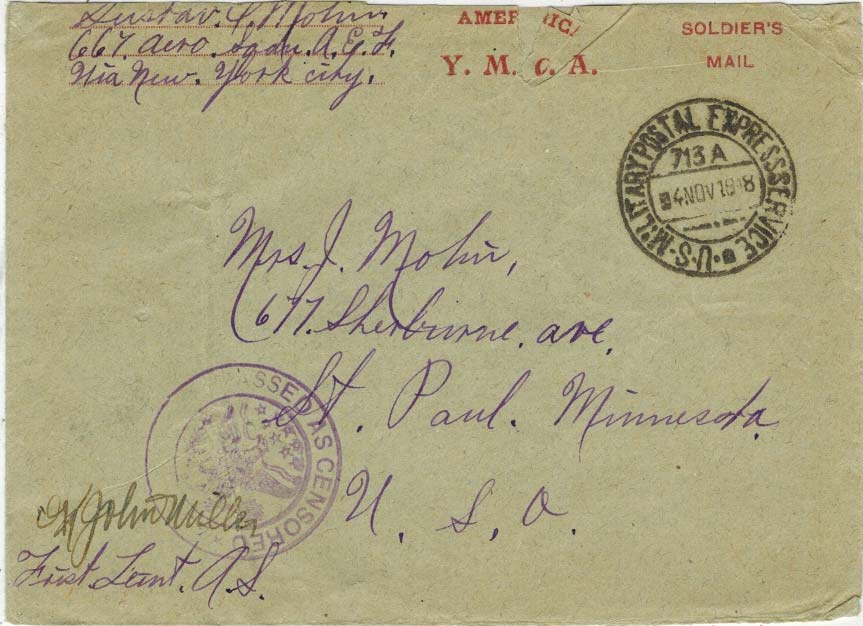 Gustav. J. Mohn
667. Aero. Sqdn. A. E. F.
Via New. York city.
AMERICAN
Y. M. C. A.
SOLDIER'S
MAIL
U·S·MILITARY POSTAL EXPRESS SERVICE
713 A
4 NOV 1918
Mrs. J. Mohn,
677. Sherburne. ave.
St. Paul. Minnesota.
U. S. A.
PASSED AS CENSORED
John Miller
First. Leut. A. S.